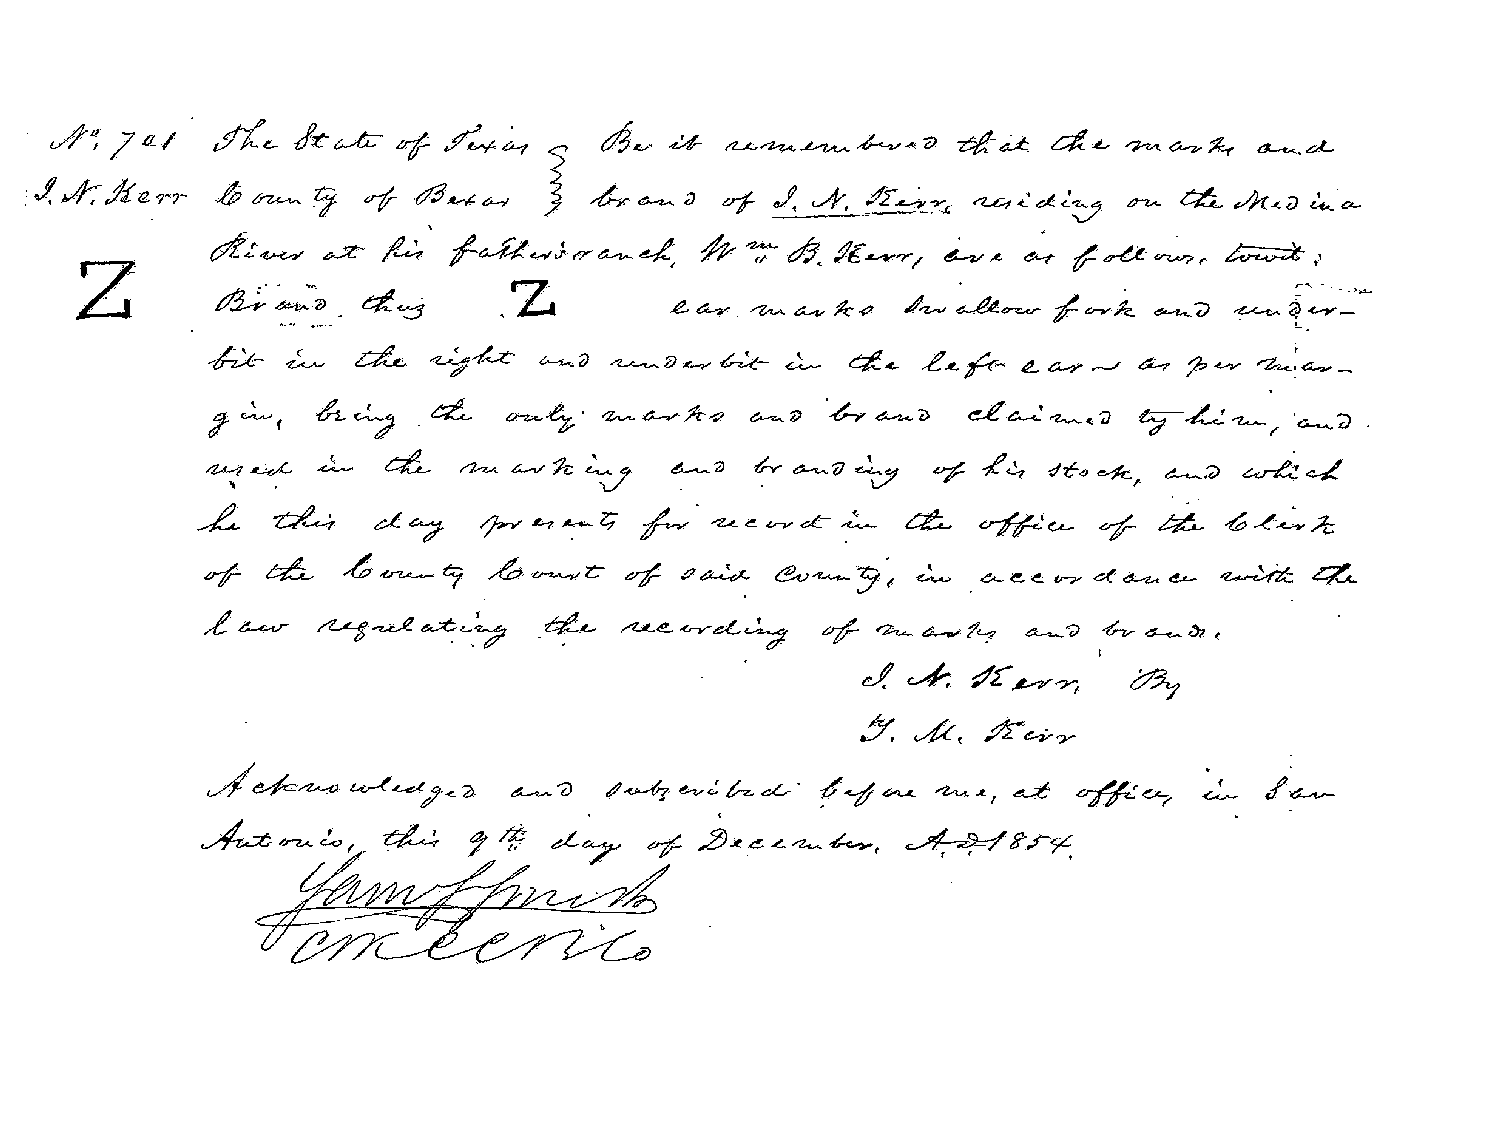 No. 701 The State of Texas Be it remembered that the marks and
I. N. Kerr County of Bexar brand of I. N. Kerr, residing on the Medina
River at his father's ranch, Wm B. Kerr, are as follows, towit:
Z Brand thus Z ear marks Swallow fork and under-
bit in the right and underbit in the left ear – as per mar-
gin, being the only marks and brand claimed by him, and
used in the marking and branding of his stock, and which
he this day presents for record in the office of the Clerk
of the County Court of said County, in accordance with the
law regulating the recording of marks and brands.
I. N. Kerr, By
T. M. Kerr
Acknowledged and subscribed before me, at office, in San
Antonio, this 9th day of December, A.D. 1854.